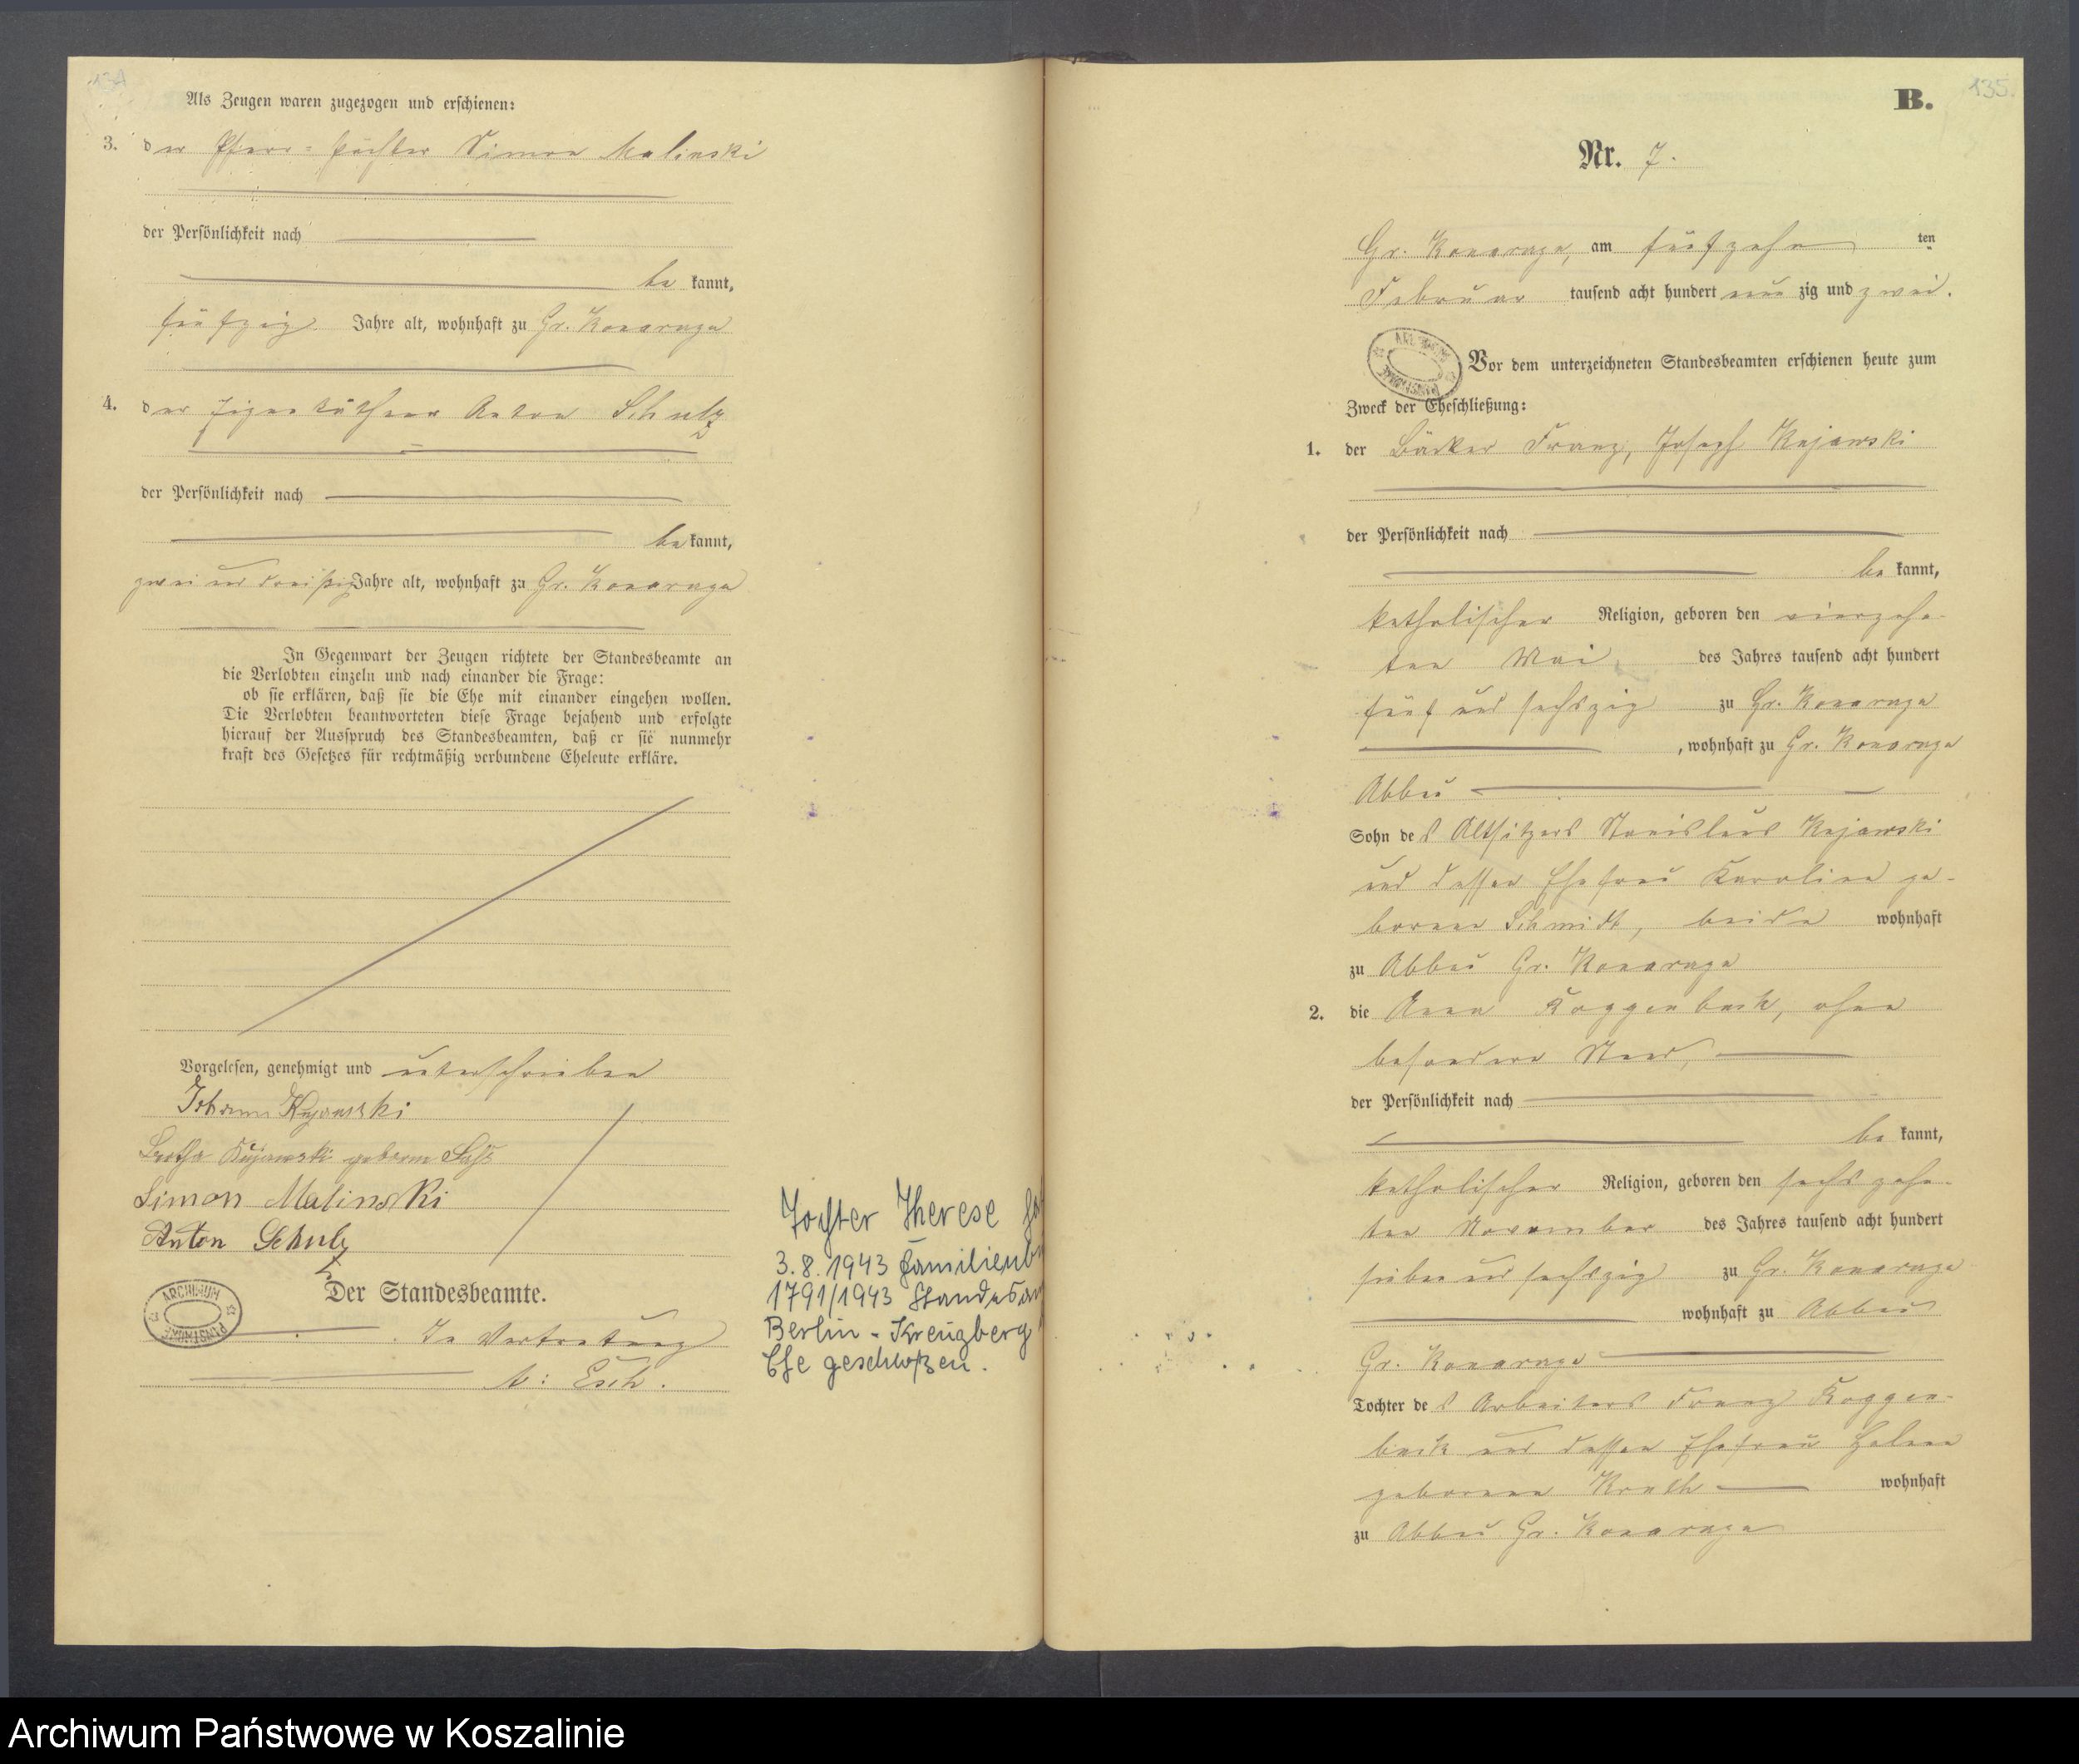 134
Als Zeugen waren zugezogen und erschienen:
3. der Pfarr-pächter Simon Malinski
der Persönlichkeit nach
be kannt,
fünfzig Jahre alt, wohnhaft zu Gr. Konarczyn
4. der Eigenkäthner Anton Schulz
der Persönlichkeit nach
be kannt,
zwei und dreißig Jahre alt, wohnhaft zu Gr. Konarczyn
In Gegenwart der Zeugen richtete der Standesbeamte an
die Verlobten einzeln und nach einander die Frage:
ob sie erklären, daß sie die Ehe mit einander eingehen wollen.
Die Verlobten beantworteten diese Frage bejahend und erfolgte
hierauf der Ausspruch des Standesbeamten, daß er sie nunmehr
kraft des Gesetzes für rechtmäßig verbundene Eheleute erkläre.
Vorgelesen, genehmigt und unterschrieben
Johann Kujawski
Kujawski geborene
Simon Malinski
Anton Schulz
Der Standesbeamte.
ARCHIWUM PAŃSTWOWE
In Vertretung
Esch.
Tochter Therese
3.8.1943
1791/1943
Berlin-Kreuzberg
Ehe geschloßen.
135.
B.
Nr. 7.
Gr. Konarczyn, am fünfzehn ten
Februar tausend acht hundert neun zig und zwei.
Vor dem unterzeichneten Standesbeamten erschienen heute zum
Zweck der Eheschließung:
1. der Bäcker Franz, Joseph Kujawski
der Persönlichkeit nach
be kannt,
katholischer Religion, geboren den vierzehn-
ten Mai des Jahres tausend acht hundert
fünf und sechszig zu Gr. Konarczyn
, wohnhaft zu Gr. Konarczyn
Abbau
Sohn des Altsitzers Stanislaus Kujawski
und dessen Ehefrau Karoline ge-
borene Schmidt, beide wohnhaft
zu Abbau Gr. Konarczyn
2. die Anna Roggenbuck, ohne
besonderen Stand,
der Persönlichkeit nach
be kannt,
katholischer Religion, geboren den sechszehn-
ten November des Jahres tausend acht hundert
sieben und sechszig zu Gr. Konarczyn
wohnhaft zu Abbau
Gr. Konarczyn
Tochter des Arbeiters Franz Roggen-
buck und dessen Ehefrau Helene
geborenen wohnhaft
zu Abbau Gr. Konarczyn
Archiwum Państwowe w Koszalinie